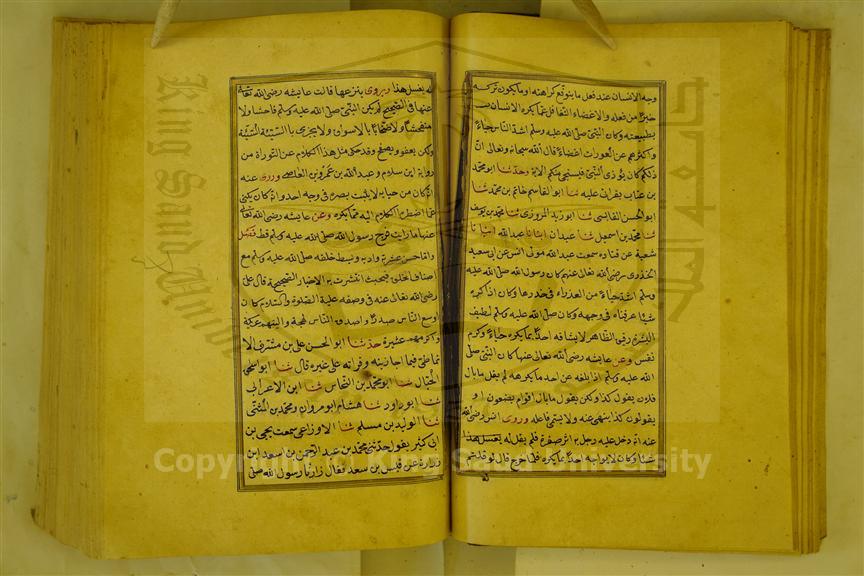 وجه الانسان عند فعل ما يتوقع كراهته او ما يكون تركه
خيرا من فعله والاغضاء التغافل عما يكره الانسان
بطبيعته وكان النبي صلى الله عليه وسلم اشد الناس حياء
واكثرهم عن العورات اغضاء قال الله سبحانه وتعالى ان
ذلكم كان يؤذي النبي فيستحيي منكم الاية وحدثنا ابو محمد
بن عتاب بقراتي عليه ثنا ابو القاسم حاتم بن محمد ثنا
ابو الحسن القابسي ثنا ابو زيد المروزي ثنا محمد بن يوسف
ثنا محمد بن اسمعيل ثنا عبدان انبانا عبد الله انبانا
شعبة عن قتادة سمعت عبد الله مولى انس عن ابي سعيد
الخدري رضي الله تعالى عنهم كان رسول الله صلى الله عليه
وسلم اشد حياء من العذراء في خدرها وكان اذا كره
شيئا عرفناه في وجهه وكان صلى الله عليه وسلم لطيف
البشرة رقيق الظاهر لا يشافه احدا بما يكرهه حياء وكرم
نفس وعن عايشه رضي الله تعالى عنها كان النبي صلى
الله عليه وسلم اذا بلغه عن احد ما يكرهه لم يقل ما بال
فلان يقول كذا ولكن يقول ما بال اقوام يصنعون او
يقولون كذا ينهى عنه ولا يسمي فاعله وروى انس رضي الله
عنه انه دخل عليه رجل به اثر صفرة فلم يقل له
شيئا وكان لا يواجه احدا بما يكره فلما خرج قال لو قلتم
له يغسل هذا ويروى ينزعها قالت عايشه رضي الله تعالى
عنها في الصحيح لم يكن النبي صلى الله عليه وسلم فاحشا ولا
متفحشا ولا سخابا بالاسواق ولا يجزي بالسيئة السيئة
ولكن يعفو ويصفح وقد حكي مثل هذا الكلام عن التوراة من
رواية ابن سلام وعبد الله بن عمرو بن العاص وروى عنه
انه كان من حيايه لا يثبت بصره في وجه احد وانه كان يكني
عما اضطره الكلام اليه مما يكره وعن عايشه رضي الله تعالى
عنها ما رايت فرج رسول الله صلى الله عليه وسلم قط فصل
واما حسن عشرته وادبه وبسط خلقه صلى الله عليه وسلم مع
اصناف الخلق فبحيث انتشرت به الاخبار الصحيحة قال علي
رضي الله تعالى عنه في وصفه عليه الصلوة والسلام كان
اوسع الناس صدرا واصدق الناس لهجة والينهم عريكة
واكرمهم عشيرة حدثنا ابو الحسن علي بن مشرف الا
نماطي فيما اجازنيه وقراته على غيره قال ثنا ابو اسحق
الحبال ثنا ابو محمد بن النحاس ثنا ابن الاعرابي
ثنا ابو داود ثنا هشام ابو مروان ومحمد بن المثنى
ثنا الوليد بن مسلم ثنا الاوزاعي سمعت يحيى بن
ابي كثير يقول حدثني محمد بن عبد الرحمن بن اسعد ابن
زرارة عن قيس بن سعد قال زارنا رسول الله صلى
Copyright © King Saud University
King Saud University
جامعة الملك